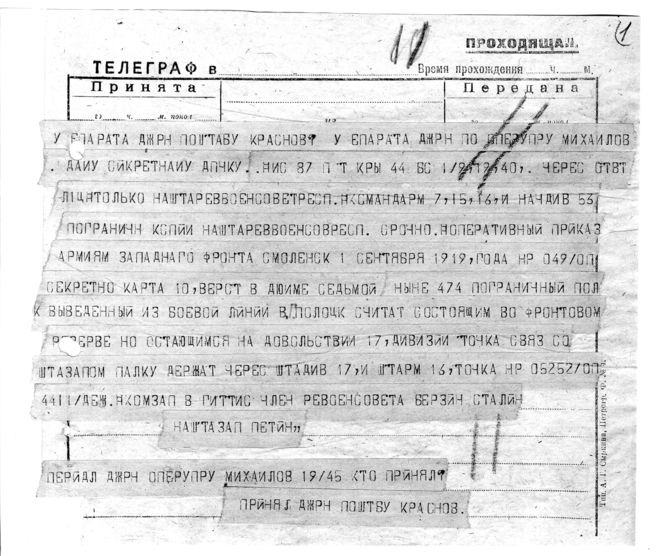 1
ПРОХОДЯЩАЯ.
ТЕЛЕГРАФ в
Время прохождения ч. м.
Принята
Передана
ч. м. попол
ч. м. попол
У ЕПАРАТА ДЖРН ПОШТАБУ КРАСНОВ? У ЕПАРАТА ДЖРН ПО ОПЕРУПРУ МИХАИЛОВ
. ДАИУ СЙКРЕТНАИУ ДПЧКУ..НИС 87 П Т КРЫ 44 БС 1/9,12,40,. ЧЕРЕС ОТВТ
ЛІЦАТОЛЬКО НАШТАРЕВВОЕНСОВЕТРЕСП.НКОМАНДАРМ 7,15,16,И НАЧДИВ 53
ПОГРАНИЧН КСПЙИ НАШТАРЕВВОЕНСОВРЕСП. СРОЧНО.НОПЕРАТИВНЫЙ ПРИКАЗ
АРМИЯМ ЗАПАДНАГО ФРОНТА СМОЛЕНСК 1 СЕНТЯБРЯ 1919,ГОДА НР 049/ОП
СЕКРЕТНО КАРТА 10,ВЕРСТ В ДЮИМЕ СЕДЬМОЙ НЫНЕ 474 ПОГРАНИЧНЫЙ ПОЛ
К ВЫВЕДЕННЫЙ ИЗ БОЕВОЙ ЛИНЙИ В ПОЛОЦК СЧИТАТ СОСТОЯЩИМ ВО ФРОНТОВОМ
РЕЗЕРВЕ НО ОСТАЮЩИМСЯ НА ДОВОЛЬСТВИИ 17,ДИВИЗИИ ТОЧКА СВЯЗ СО
ШТАЗАПОМ ПАЛКУ ДЕРЖАТ ЧЕРЕС ШТАДИВ 17,И ШТАРМ 16,ТОЧКА НР 05252/ОП
4411/ДЕЖ.НКОМЗАП В ГИТТИС ЧЛЕН РЕВОЕНСОВЕТА БЕРЗИН СТАЛИН
НАШТАЗАП ПЕТИН„
ПЕРЙДАЛ ДЖРН ОПЕРУПРУ МИХАИЛОВ 19/45 КТО ПРИНЯЛ?
ПРИНЯЛ ДЖРН ПОШТБУ КРАСНОВ.